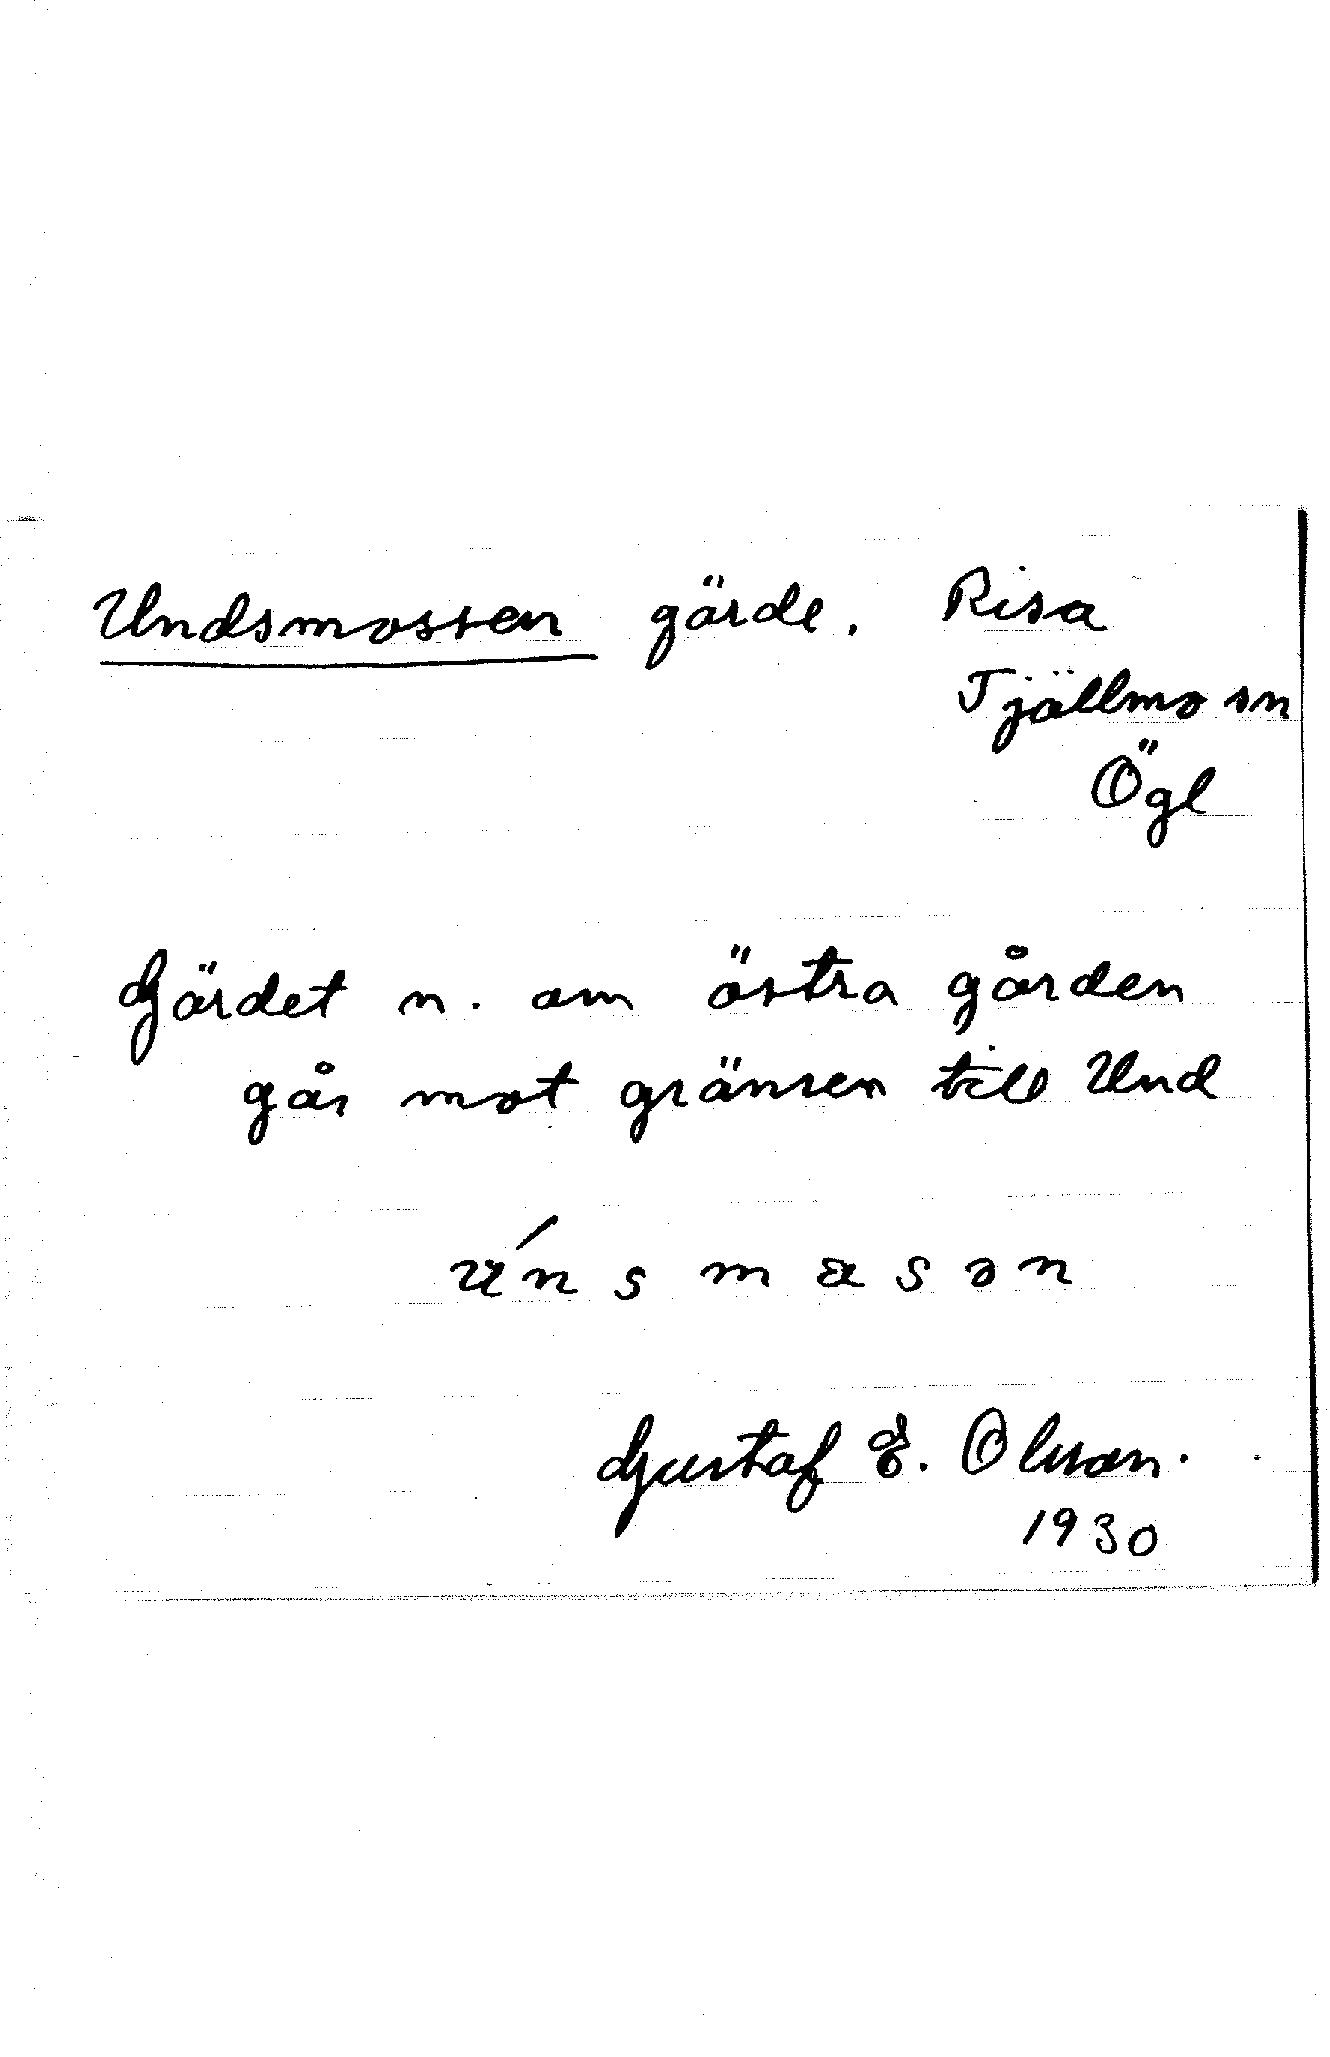 Undsmossen gärde. Risa
Tjällmo sn
Ögl
Gärdet n. om östra gården
går mot gränsen till Und
u´nsmasən
Gustaf E. Olsson.
1930